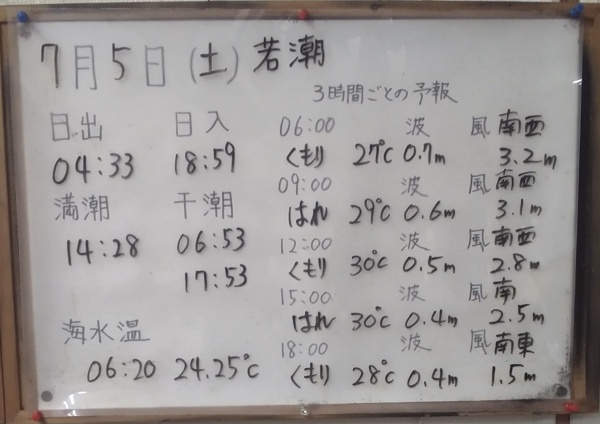 7月5日(土)若潮
日出 日入
04:33 18:59
満潮 干潮
14:28 06:53
17:53
海水温
06:20 24.25℃
3時間ごとの予報
06:00 波 風 南西
くもり 27℃ 0.7m 3.2m
09:00 波 風 南西
はれ 29℃ 0.6m 3.1m
12:00 波 風 南西
くもり 30℃ 0.5m 2.8m
15:00 波 風 南
はれ 30℃ 0.4m 2.5m
18:00 波 風 南東
くもり 28℃ 0.4m 1.5m